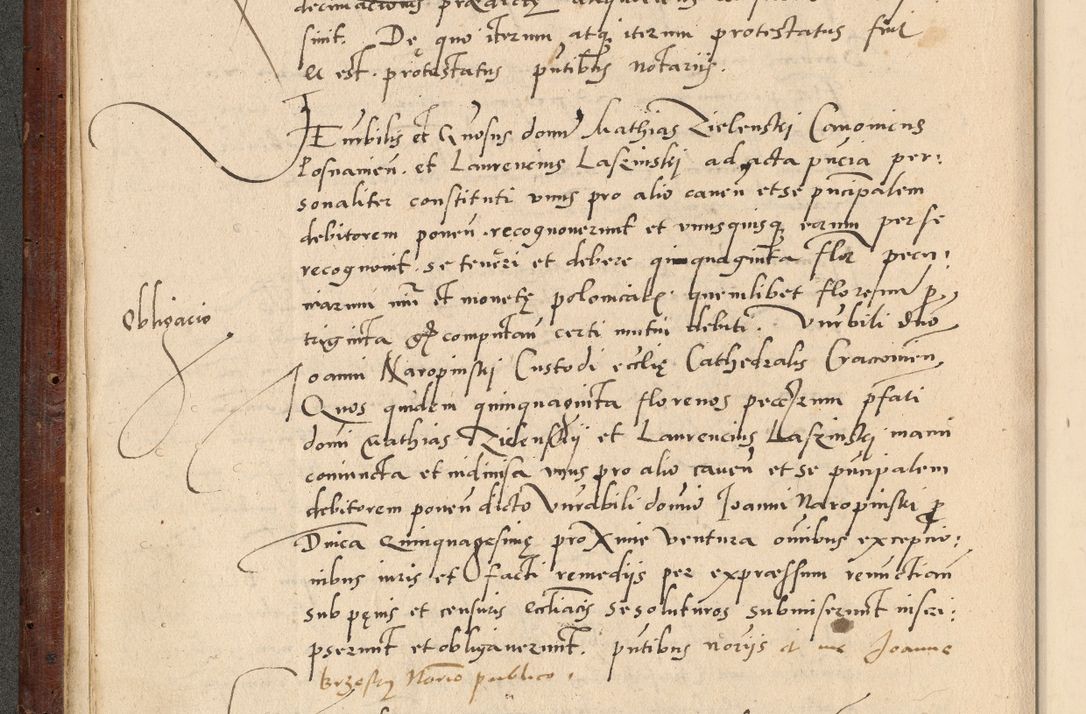 sint. Dę quo iterum atq iterum protestatus fuit
& est protestatus pntibus notariis.
Venbilis et Gnosus domi Mathias Zielenskj Canonicus
Posnanien. et Laurencius Laszinskj ad acta pncia per:
sonaliter constituti unus pro alio caven et se pncipalem
debitorem ponen. recognoverunt et unusquisq eorum per se
recognovit. se teneri et debere quinquaginta flor pecu:
niarum nui et monetę polonicalis quemlibet florenum p
triginta gr computan certi mutui debiti. Vnrbili dno
Joanni Naropinskj Custodi ecclię Cathedralis Cracovien
Quos quidem quinquaginta florenos pecciarum pfati
domi Mathias Zielenskij et Laurencius Laszinskj manu
coniuncta et indivisa unus pro alio caven et se pncipalem
debitorem ponen dicto Vnrabili domino Joanni Naropinskj p
Dnica Quinquagesimę proxime ventura omibus exceptio:
nibus iuris et facti remediis per expressum renunctian
sub pęnis et censuris eccliacis se soluturos submiserunt inscri:
pserunt et obligaverunt. pntibus noriis et me Joanne
Brzeskj Norio publico.
Obligacio